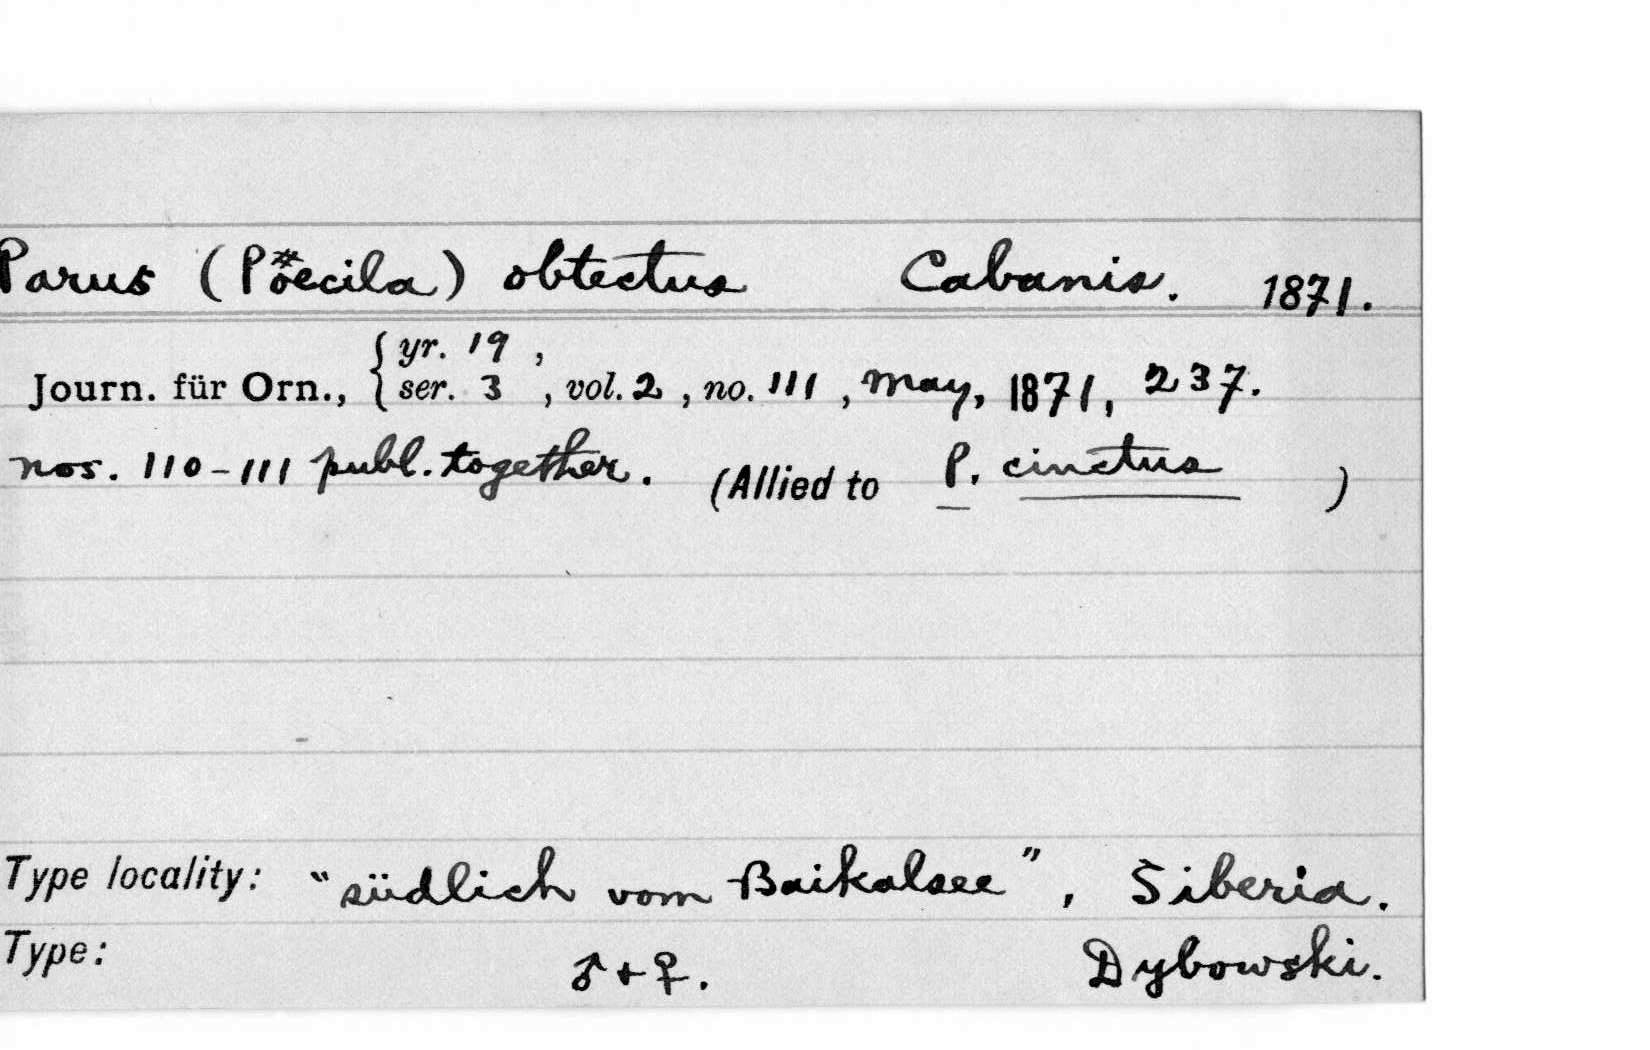 Parus (Pöecila) obtectus Cabanis. 1871.
Journ. für Orn., { yr. 19 ,
ser. 3 , vol. 2 , no. 111 , May, 1871, 237.
nos. 110-111 publ. together. (Allied to P. cinctus )
Type locality: "südlich vom Baikalsee", Siberia.
Type: ♂ + ♀. Dybowski.